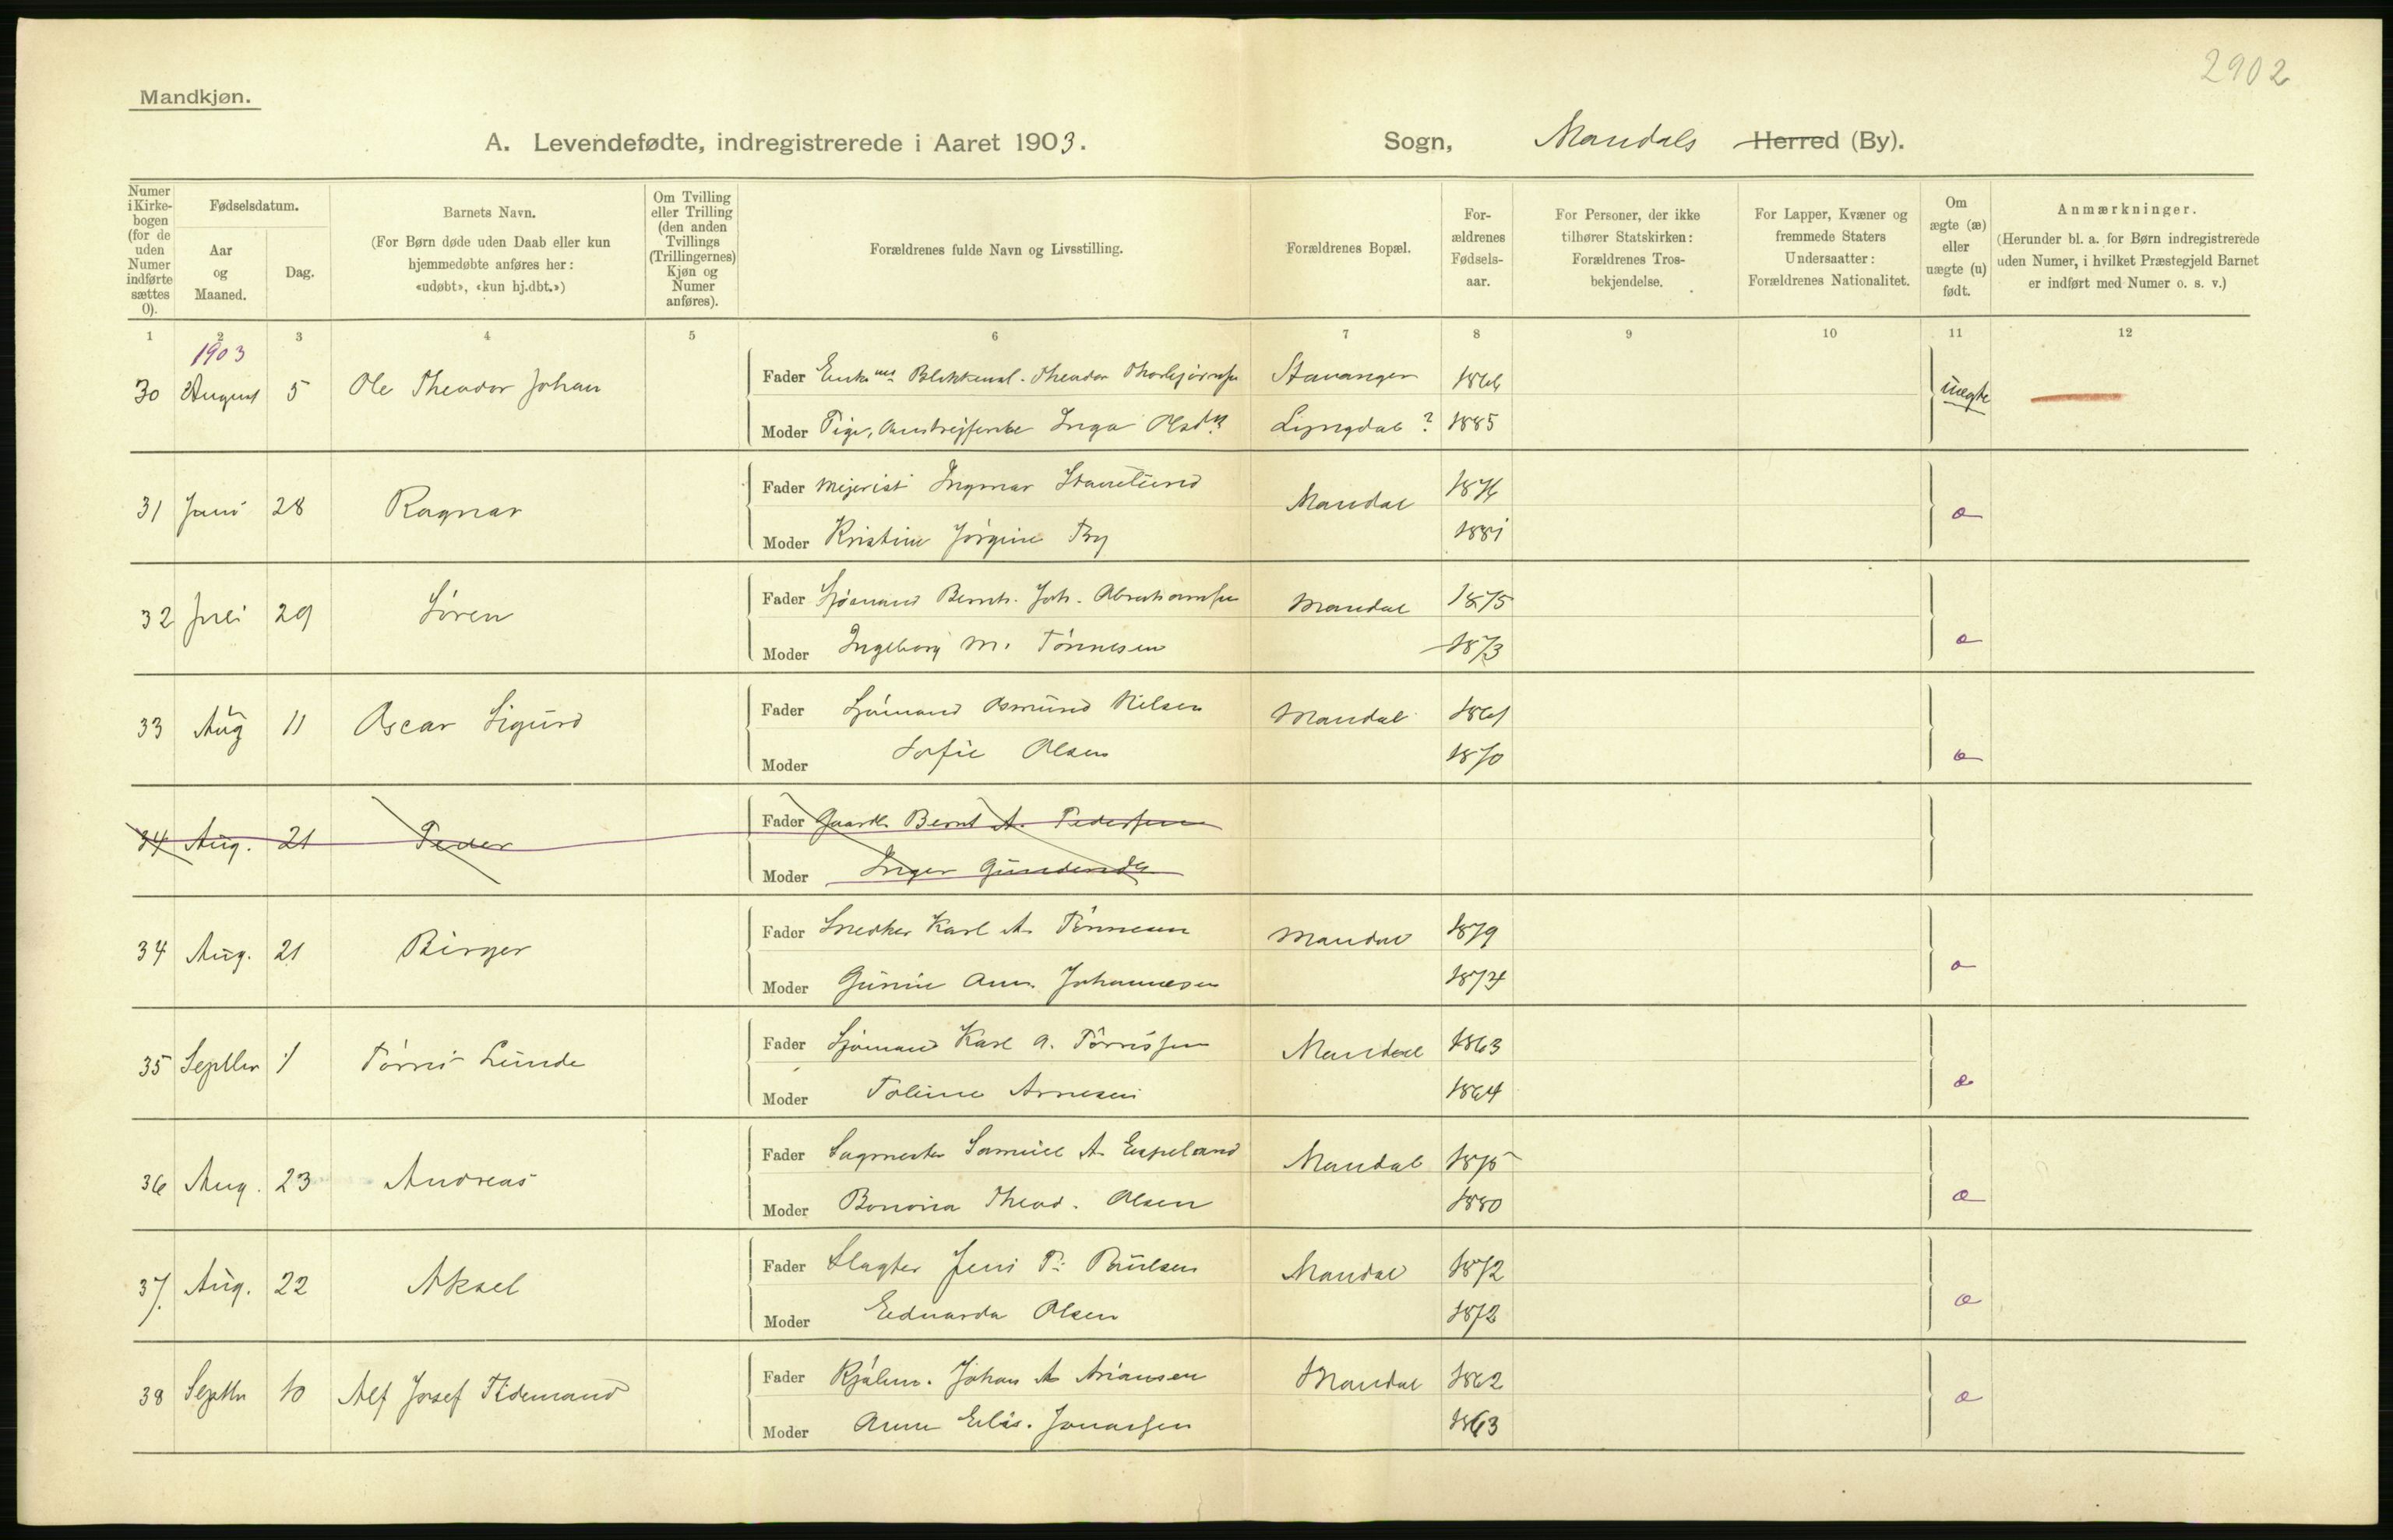 2902
Mandkjøn.
A. Levendefødte, indregistrerede i Aaret 1903. Sogn, Mandals Herred (By).
Numer i Kirkebogen (for de uden Numer indførte sættes 0).
Fødselsdatum.
Aar og Maaned.
Dag.
Barnets Navn.
(For Børn døde uden Daab eller kun hjemmedøbte anføres her: «udøbt», «kun hj.dbt.»)
Om Tvilling eller Trilling (den anden Tvillings (Trillingernes) Kjøn og Numer anføres).
Forældrenes fulde Navn og Livsstilling.
Forældrenes Bopæl.
Forældrenes Fødselsaar.
For Personer, der ikke tilhører Statskirken: Forældrenes Trosbekjendelse.
For Lapper, Kvæner og fremmede Staters Undersaatter: Forældrenes Nationalitet.
Om ægte (æ) eller uægte (u) født.
Anmærkninger.
(Herunder bl. a. for Børn indregistrerede uden Numer, i hvilket Præstegjeld Barnet er indført med Numer o. s. v.)
1 2 3 4 5 6 7 8 9 10 11 12
1903
30 August 5 Ole Theodor Johan Fader Theodor Stavanger 1866 uægte
Moder Pige, Inga Lyngdal ? 1885
31 Juni 28 Ragnar Fader Mejerist Ingmar Mandal 1876 æ
Moder Kristine Jørgine By 1881
32 Juli 29 Søren Fader Sjømand Bernh. Joh. Abrahamsen Mandal 1875 æ
Moder Ingeborg M. Tønnesen 1873
33 Aug 11 Oscar Sigurd Fader Sjømand Asmund Nilsen Mandal 1861 æ
Moder Sofie Olsen 1870
34 Aug. 21 Peder Fader Gaardb. Bernt A. Pedersen
Moder Inger
34 Aug. 21 Birger Fader Snedker Karl A. Tønnesen Mandal 1879 æ
Moder Gunie Ann. Johannesen 1874
35 Septbr 1 Tørris Lunde Fader Sjømand Karl A. Tørrissen Mandal 1863 æ
Moder Toline Arnesen 1864
36 Aug. 23 Andreas Fader Sagmester Samuel A. Espeland Mandal 1875 æ
Moder Theod. Olsen 1880
37. Aug. 22 Aksel Fader Slagter Jens P. Paulsen Mandal 1872 æ
Moder Eduarda Olsen 1872
38 Septbr 10 Alf Josef Tidemand Fader Johan A. Ariansen Mandal 1862 æ
Moder Anne Elis. Jonassen 1863